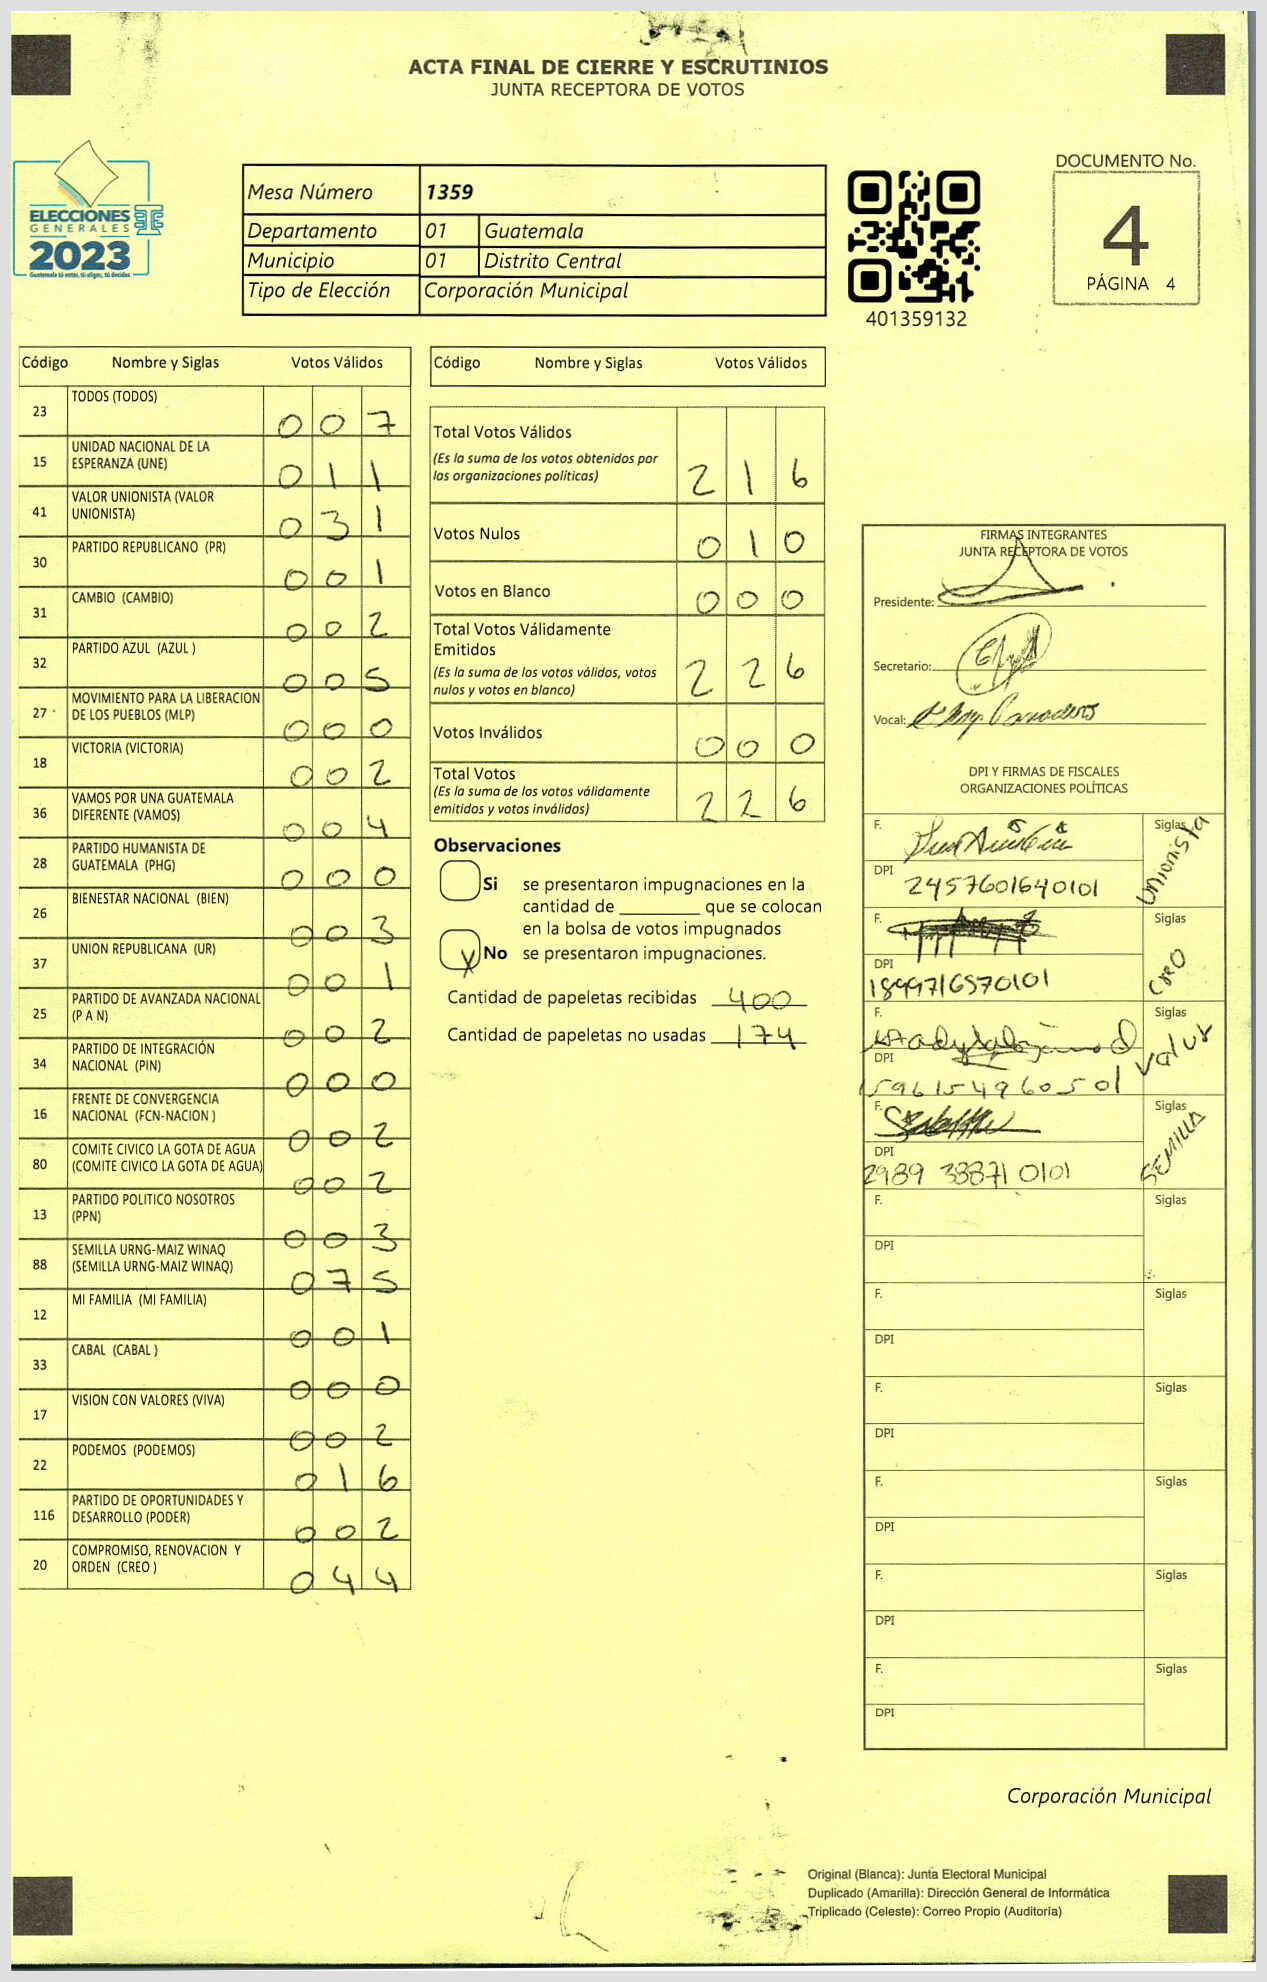 ACTA FINAL DE CIERRE Y ESCRUTINIOS
JUNTA RECEPTORA DE VOTOS
ELECCIONES
GENERALES
2023
Guatemala tú votas, tú eliges, tú decides
Mesa Número 1359
Departamento 01 Guatemala
Municipio 01 Distrito Central
Tipo de Elección Corporación Municipal
401359132
DOCUMENTO No.
4
PÁGINA 4
Código Nombre y Siglas Votos Válidos
23 TODOS (TODOS) 0 0 7
15 UNIDAD NACIONAL DE LA ESPERANZA (UNE) 0 1 1
41 VALOR UNIONISTA (VALOR UNIONISTA) 0 3 1
30 PARTIDO REPUBLICANO (PR) 0 0 1
31 CAMBIO (CAMBIO) 0 0 2
32 PARTIDO AZUL (AZUL ) 0 0 5
27 MOVIMIENTO PARA LA LIBERACION DE LOS PUEBLOS (MLP) 0 0 0
18 VICTORIA (VICTORIA) 0 0 2
36 VAMOS POR UNA GUATEMALA DIFERENTE (VAMOS) 0 0 4
28 PARTIDO HUMANISTA DE GUATEMALA (PHG) 0 0 0
26 BIENESTAR NACIONAL (BIEN) 0 0 3
37 UNION REPUBLICANA (UR) 0 0 1
25 PARTIDO DE AVANZADA NACIONAL (P A N) 0 0 2
34 PARTIDO DE INTEGRACIÓN NACIONAL (PIN) 0 0 0
16 FRENTE DE CONVERGENCIA NACIONAL (FCN-NACION ) 0 0 2
80 COMITE CIVICO LA GOTA DE AGUA (COMITE CIVICO LA GOTA DE AGUA) 0 0 2
13 PARTIDO POLITICO NOSOTROS (PPN) 0 0 3
88 SEMILLA URNG-MAIZ WINAQ (SEMILLA URNG-MAIZ WINAQ) 0 7 5
12 MI FAMILIA (MI FAMILIA) 0 0 1
33 CABAL (CABAL ) 0 0 0
17 VISION CON VALORES (VIVA) 0 0 2
22 PODEMOS (PODEMOS) 0 1 6
116 PARTIDO DE OPORTUNIDADES Y DESARROLLO (PODER) 0 0 2
20 COMPROMISO, RENOVACION Y ORDEN (CREO ) 0 4 4
Código Nombre y Siglas Votos Válidos
Total Votos Válidos
(Es la suma de los votos obtenidos por
las organizaciones políticas) 2 1 6
Votos Nulos 0 1 0
Votos en Blanco 0 0 0
Total Votos Válidamente
Emitidos
(Es la suma de los votos válidos, votos
nulos y votos en blanco) 2 2 6
Votos Inválidos 0 0 0
Total Votos
(Es la suma de los votos válidamente
emitidos y votos inválidos) 2 2 6
Observaciones
Si se presentaron impugnaciones en la
cantidad de ________ que se colocan
en la bolsa de votos impugnados
X No se presentaron impugnaciones.
Cantidad de papeletas recibidas 400
Cantidad de papeletas no usadas 174
FIRMAS INTEGRANTES
JUNTA RECEPTORA DE VOTOS
Presidente:
Secretario:
Vocal:
DPI Y FIRMAS DE FISCALES
ORGANIZACIONES POLÍTICAS
F. Siglas Unionista
DPI 2457601640101
F. Siglas CREO
DPI 1899716570101
F. Siglas Valor
DPI 1596154960501
F. Siglas SEMILLA
DPI 2989 38871 0101
F. Siglas
DPI
F. Siglas
DPI
F. Siglas
DPI
F. Siglas
DPI
F. Siglas
DPI
F. Siglas
DPI
Corporación Municipal
Original (Blanca): Junta Electoral Municipal
Duplicado (Amarilla): Dirección General de Informática
Triplicado (Celeste): Correo Propio (Auditoría)